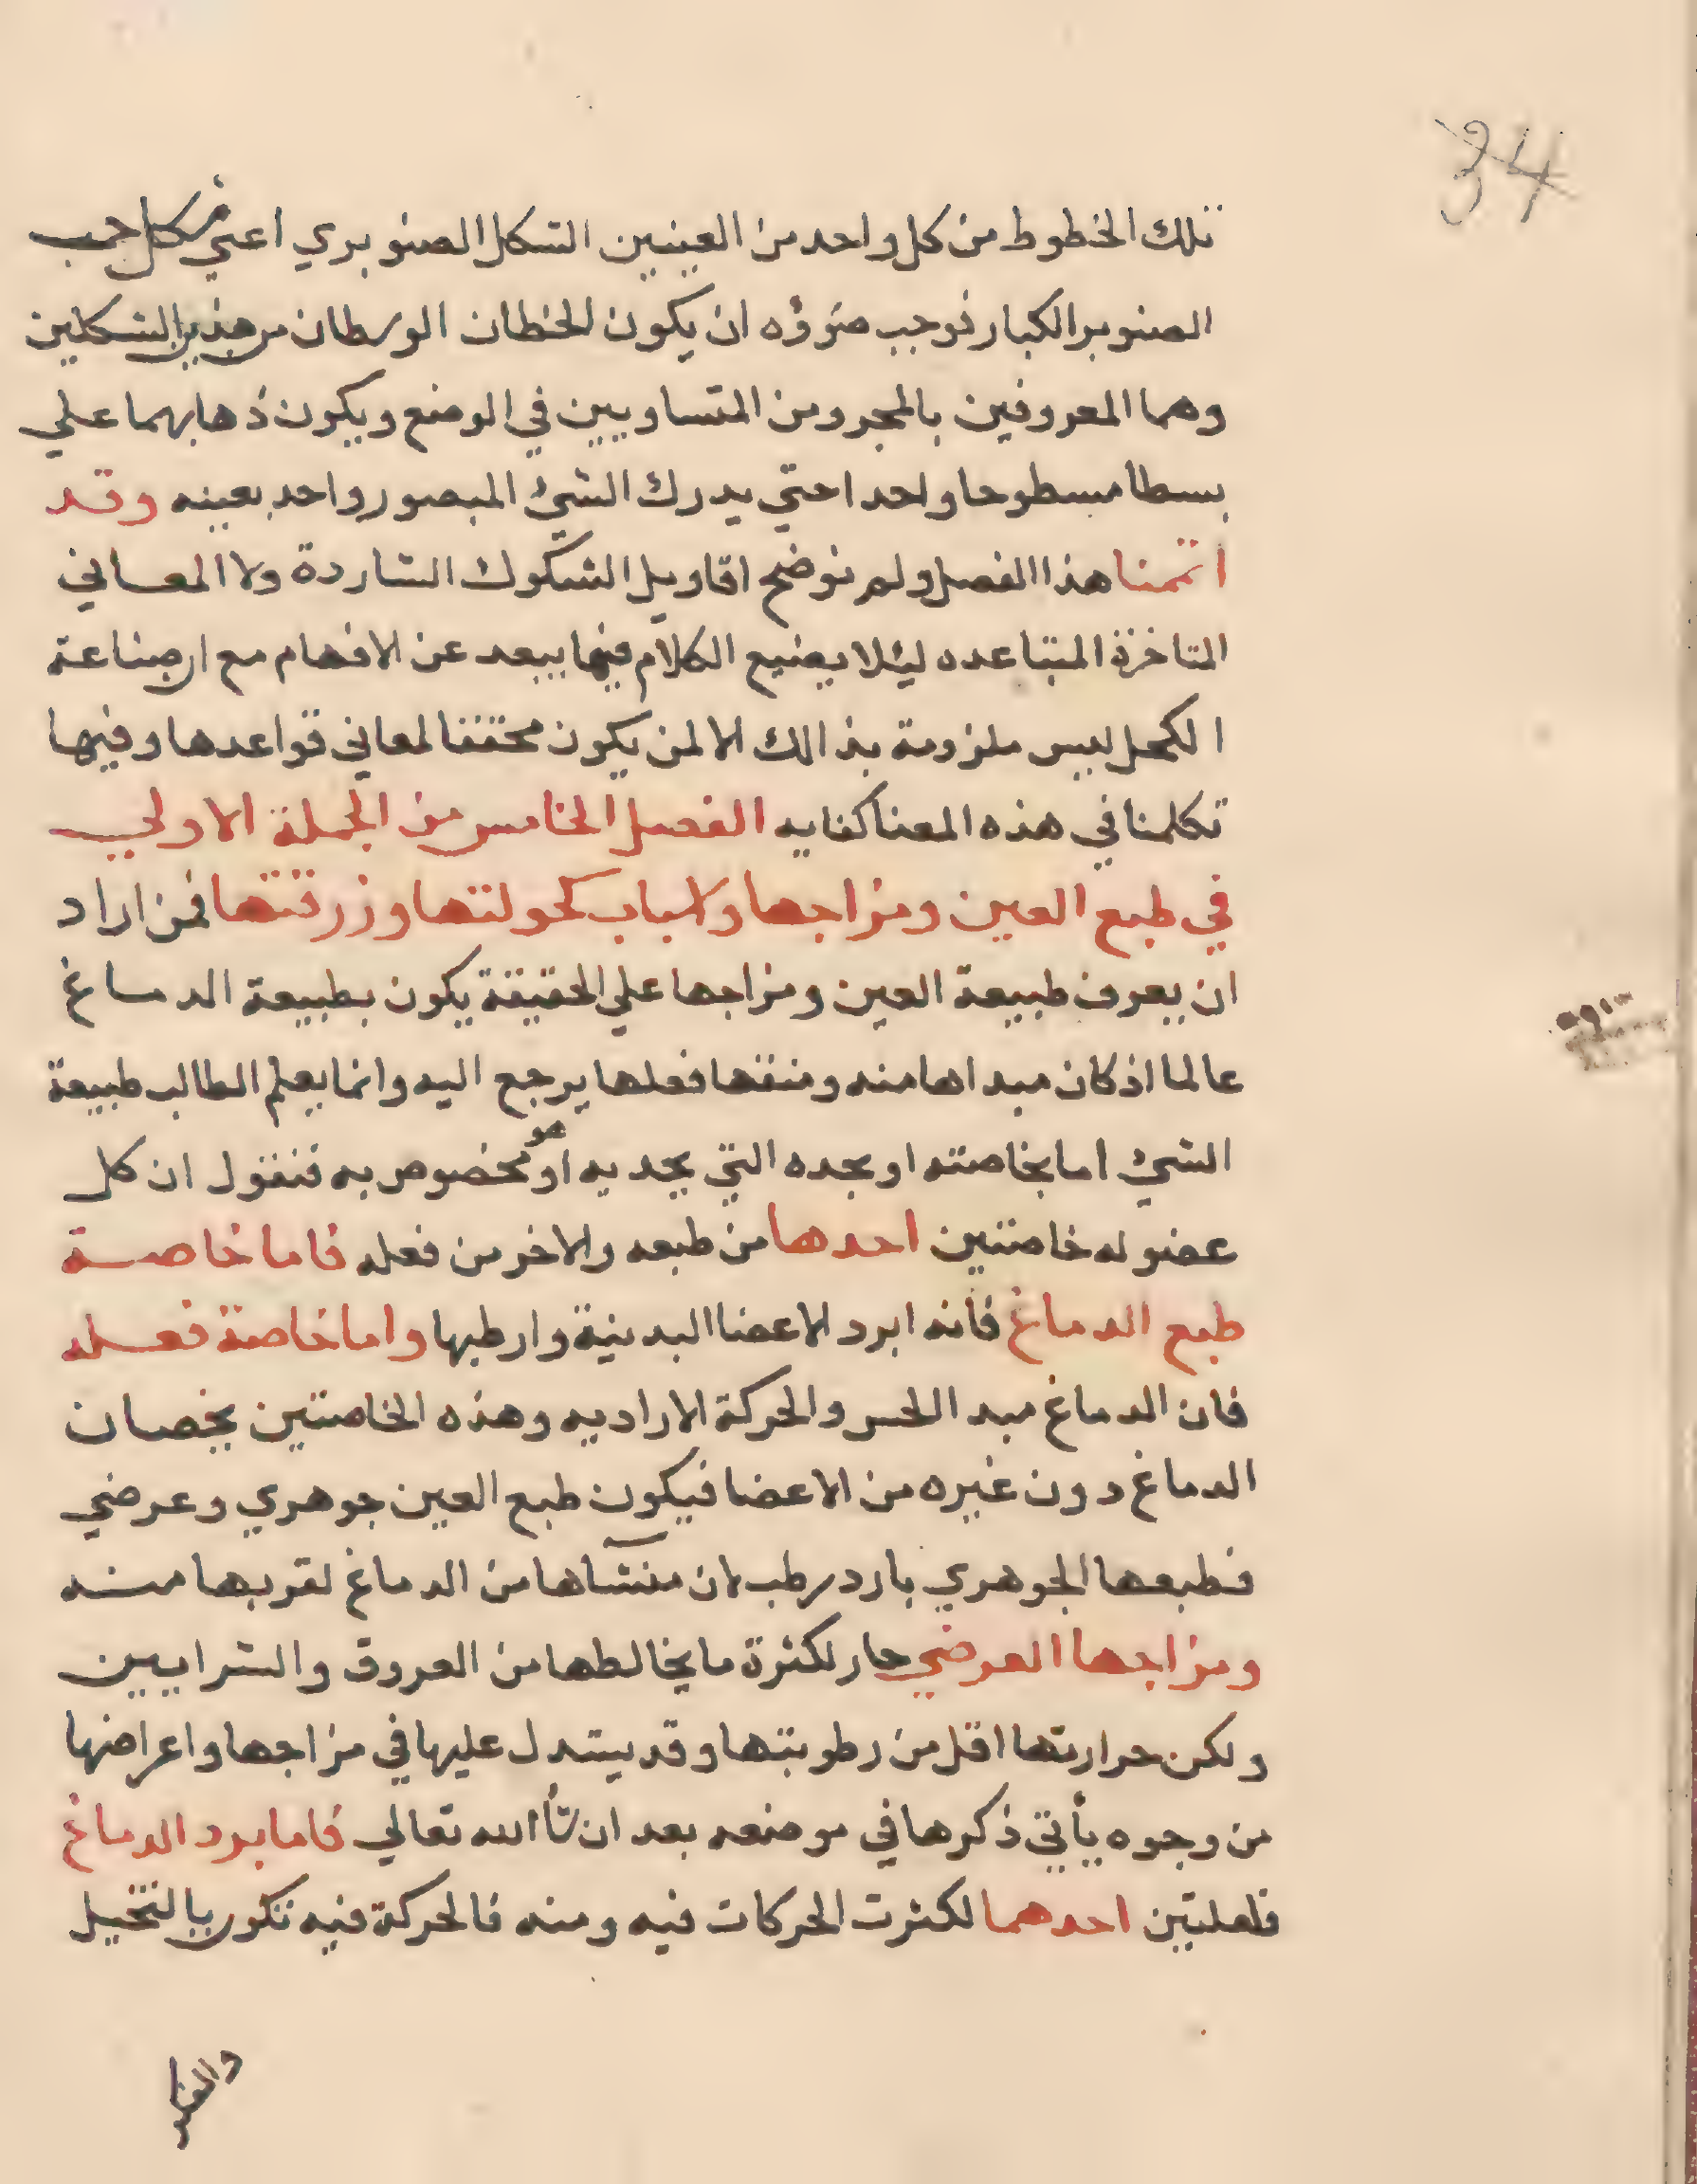 34
تلك الخطوط من كل واحد من العينين الشكل الصنوبري اعني شكل حب
الصنوبر الكبار فوجب ضرورة ان يكون الخطان الوسطان من هذين الشكلين
وهما المعروفين بالمجرو من المتساويين في الوضع ويكون ذهابهما علي
بسطا مسطوحا واحدا حتي يدرك الشيء المبصور واحد بعينه وقد
اتممنا هذا الفصل ولم نوضح اقاويل الشكوك الشاردة ولا المعاني
المتاخرة المتباعده ليئلا يضيع الكلام فيما يبعد عن الافهام مع ان صناعة
الكحل ليس ملزومة بذالك الا لمن يكون محققا لمعاني قواعدها وفيما
تكلمنا في هذه المعنا كفايه الفصل الخامس من الجملة الاولي
في طبع العين ومزاجها واسباب كحولتها وزرقتها فمن اراد
ان يعرف طبيعة العين ومزاجها علي الحقيقة يكون بطبيعة الدماغ
عالما اذ كان مبداها منه ومنفها فعلها يرجع اليه وانما يعلم الطالب طبيعة
الشيء اما بخاصته او بحده التي يحد به او هو مخصوص به فنقول ان كل
عضو له خاصتين احدها من طبعه والاخر من فعله فاما خاصة
طبع الدماغ فأنه ابرد الاعضا البدنية وارطبها واما خاصة فعله
فان الدماغ مبدا الحس والحركة الاراديه وهذه الخاصتين يخصان
الدماغ دون غيره من الاعضا فيكون طبع العين جوهري وعرضي
فطبعها الجوهري بارد رطب لان منشاها من الدماغ لقربها منه
ومزاجها العرضي حار لكثرة ما يخالطها من العروق والشرايين
ولكن حرارتها اقل من رطوبتها وقد يستدل عليها في مزاجها واعراضها
من وجوه يأتي ذكرها في موضعه بعد ان شأ الله تعالي فاما برد الدماغ
فلعلتين احدهما لكثرت الحركات فيه ومنه فالحركة فيه تكون بالتخيل